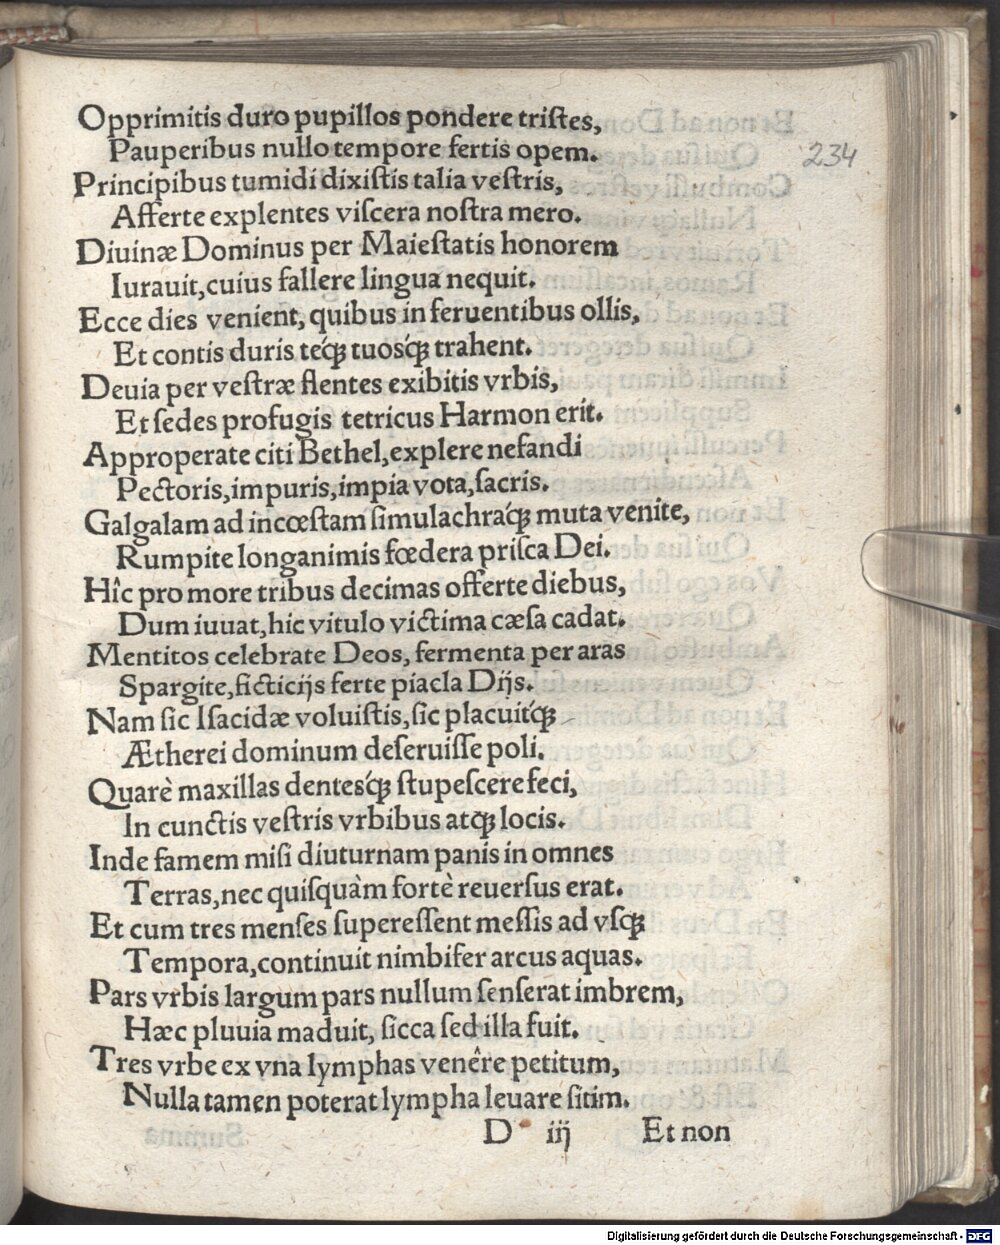 Opprimitis duro pupillos pondere triſtes,
Pauperibus nullo tempore fertis opem.
234
Principibus tumidi dixiſtis talia veſtris,
Afferte explentes viſcera noſtra mero.
Diuinæ Dominus per Maieſtatis honorem
Iurauit, cuius fallere lingua nequit.
Ecce dies venient, quibus in feruentibus ollis,
Et contis duris téq́ꝫ tuosq́ꝫ trahent.
Deuia per veſtræ flentes exibitis vrbis,
Et ſedes profugis tetricus Harmon erit.
Approperate citi Bethel, explere nefandi
Pectoris, impuris, impia vota, ſacris.
Galgalam ad incœſtam ſimulachraq́ꝫ muta venite,
Rumpite longanimis fœdera priſca Dei.
Hîc pro more tribus decimas offerte diebus,
Dum iuuat, hic vitulo victima cæſa cadat.
Mentitos celebrate Deos, fermenta per aras
Spargite, ficticijs ferte piacla Dijs.
Nam ſic Iſacidæ voluiſtis, ſic placuitq́ꝫ
Ætherei dominum deſeruiſſe poli.
Quarè maxillas dentesq́ꝫ ſtupeſcere feci,
In cunctis veſtris vrbibus atqꝫ locis.
Inde famem miſi diuturnam panis in omnes
Terras, nec quiſquàm fortè reuerſus erat.
Et cum tres menſes ſupereſſent meſſis ad vſqꝫ
Tempora, continuit nimbifer arcus aquas.
Pars vrbis largum pars nullum ſenſerat imbrem,
Hæc pluuia maduit, ſicca ſed illa fuit.
Tres vrbe ex vna lymphas venêre petitum,
Nulla tamen poterat lympha leuare ſitim.
D iij Et non
Digitalisierung gefördert durch die Deutsche Forschungsgemeinschaft - DFG